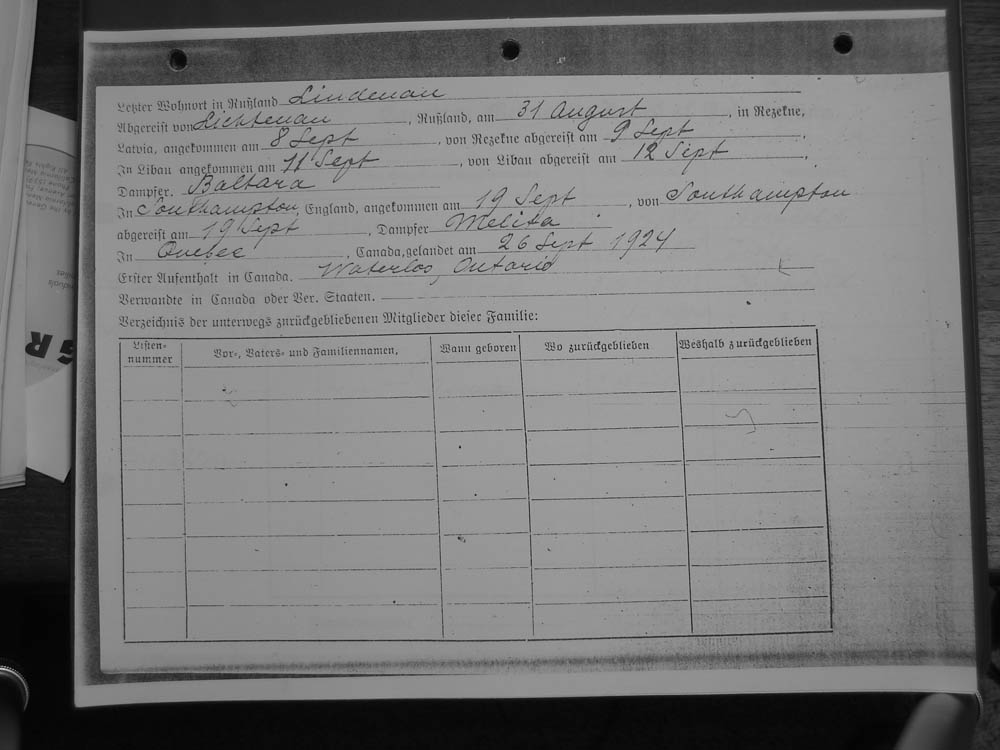 Letzter Wohnort in Rußland Lindenau
Abgereist von Lichtenau, Rußland, am 31 August, in Rezekne,
Latvia, angekommen am 8 Sept, von Rezekne abgereist am 9 Sept.
In Libau angekommen am 11 Sept, von Libau abgereist am 12 Sept
Dampfer. Baltara
In Southampton, England, angekommen am 19 Sept, von Southampton
abgereist am 19 Sept, Dampfer Melita
In Quebec, Canada, gelandet am 26 Sept 1924
Erster Aufenthalt in Canada. Waterloo, Ontario
Verwandte in Canada oder Ver. Staaten.
Verzeichnis der unterwegs zurückgebliebenen Mitglieder dieser Familie:
Listen-
nummer
Vor-, Vaters- und Familiennamen,
Wann geboren
Wo zurückgeblieben
Weshalb zurückgeblieben
GR